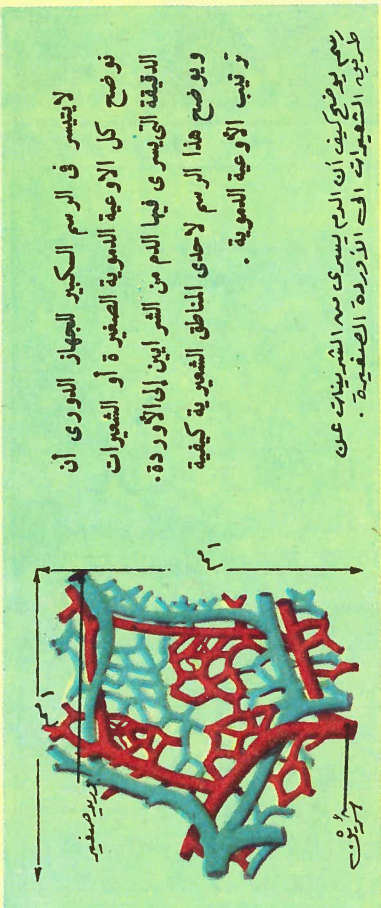 لايتيسر فى الرسم الكبير للجهاز الدورى أن
نوضح كل الاوعية الدموية الصغيرة أو الشعيرات
الدقيقة التى يسرى فيها الدم من الشرايين إلى الأوردة.
ويوضح هذا الرسم لاحدى المناطق الشعيرية كيفية
ترتيب الأوعية الدموية .
رسم يوضح كيف أن الدم يسرى من الشرينات عن
طريق الشعيرات الى الأوردة الصغيرة .
١مم
١مم
وريد صغير
شُرَين